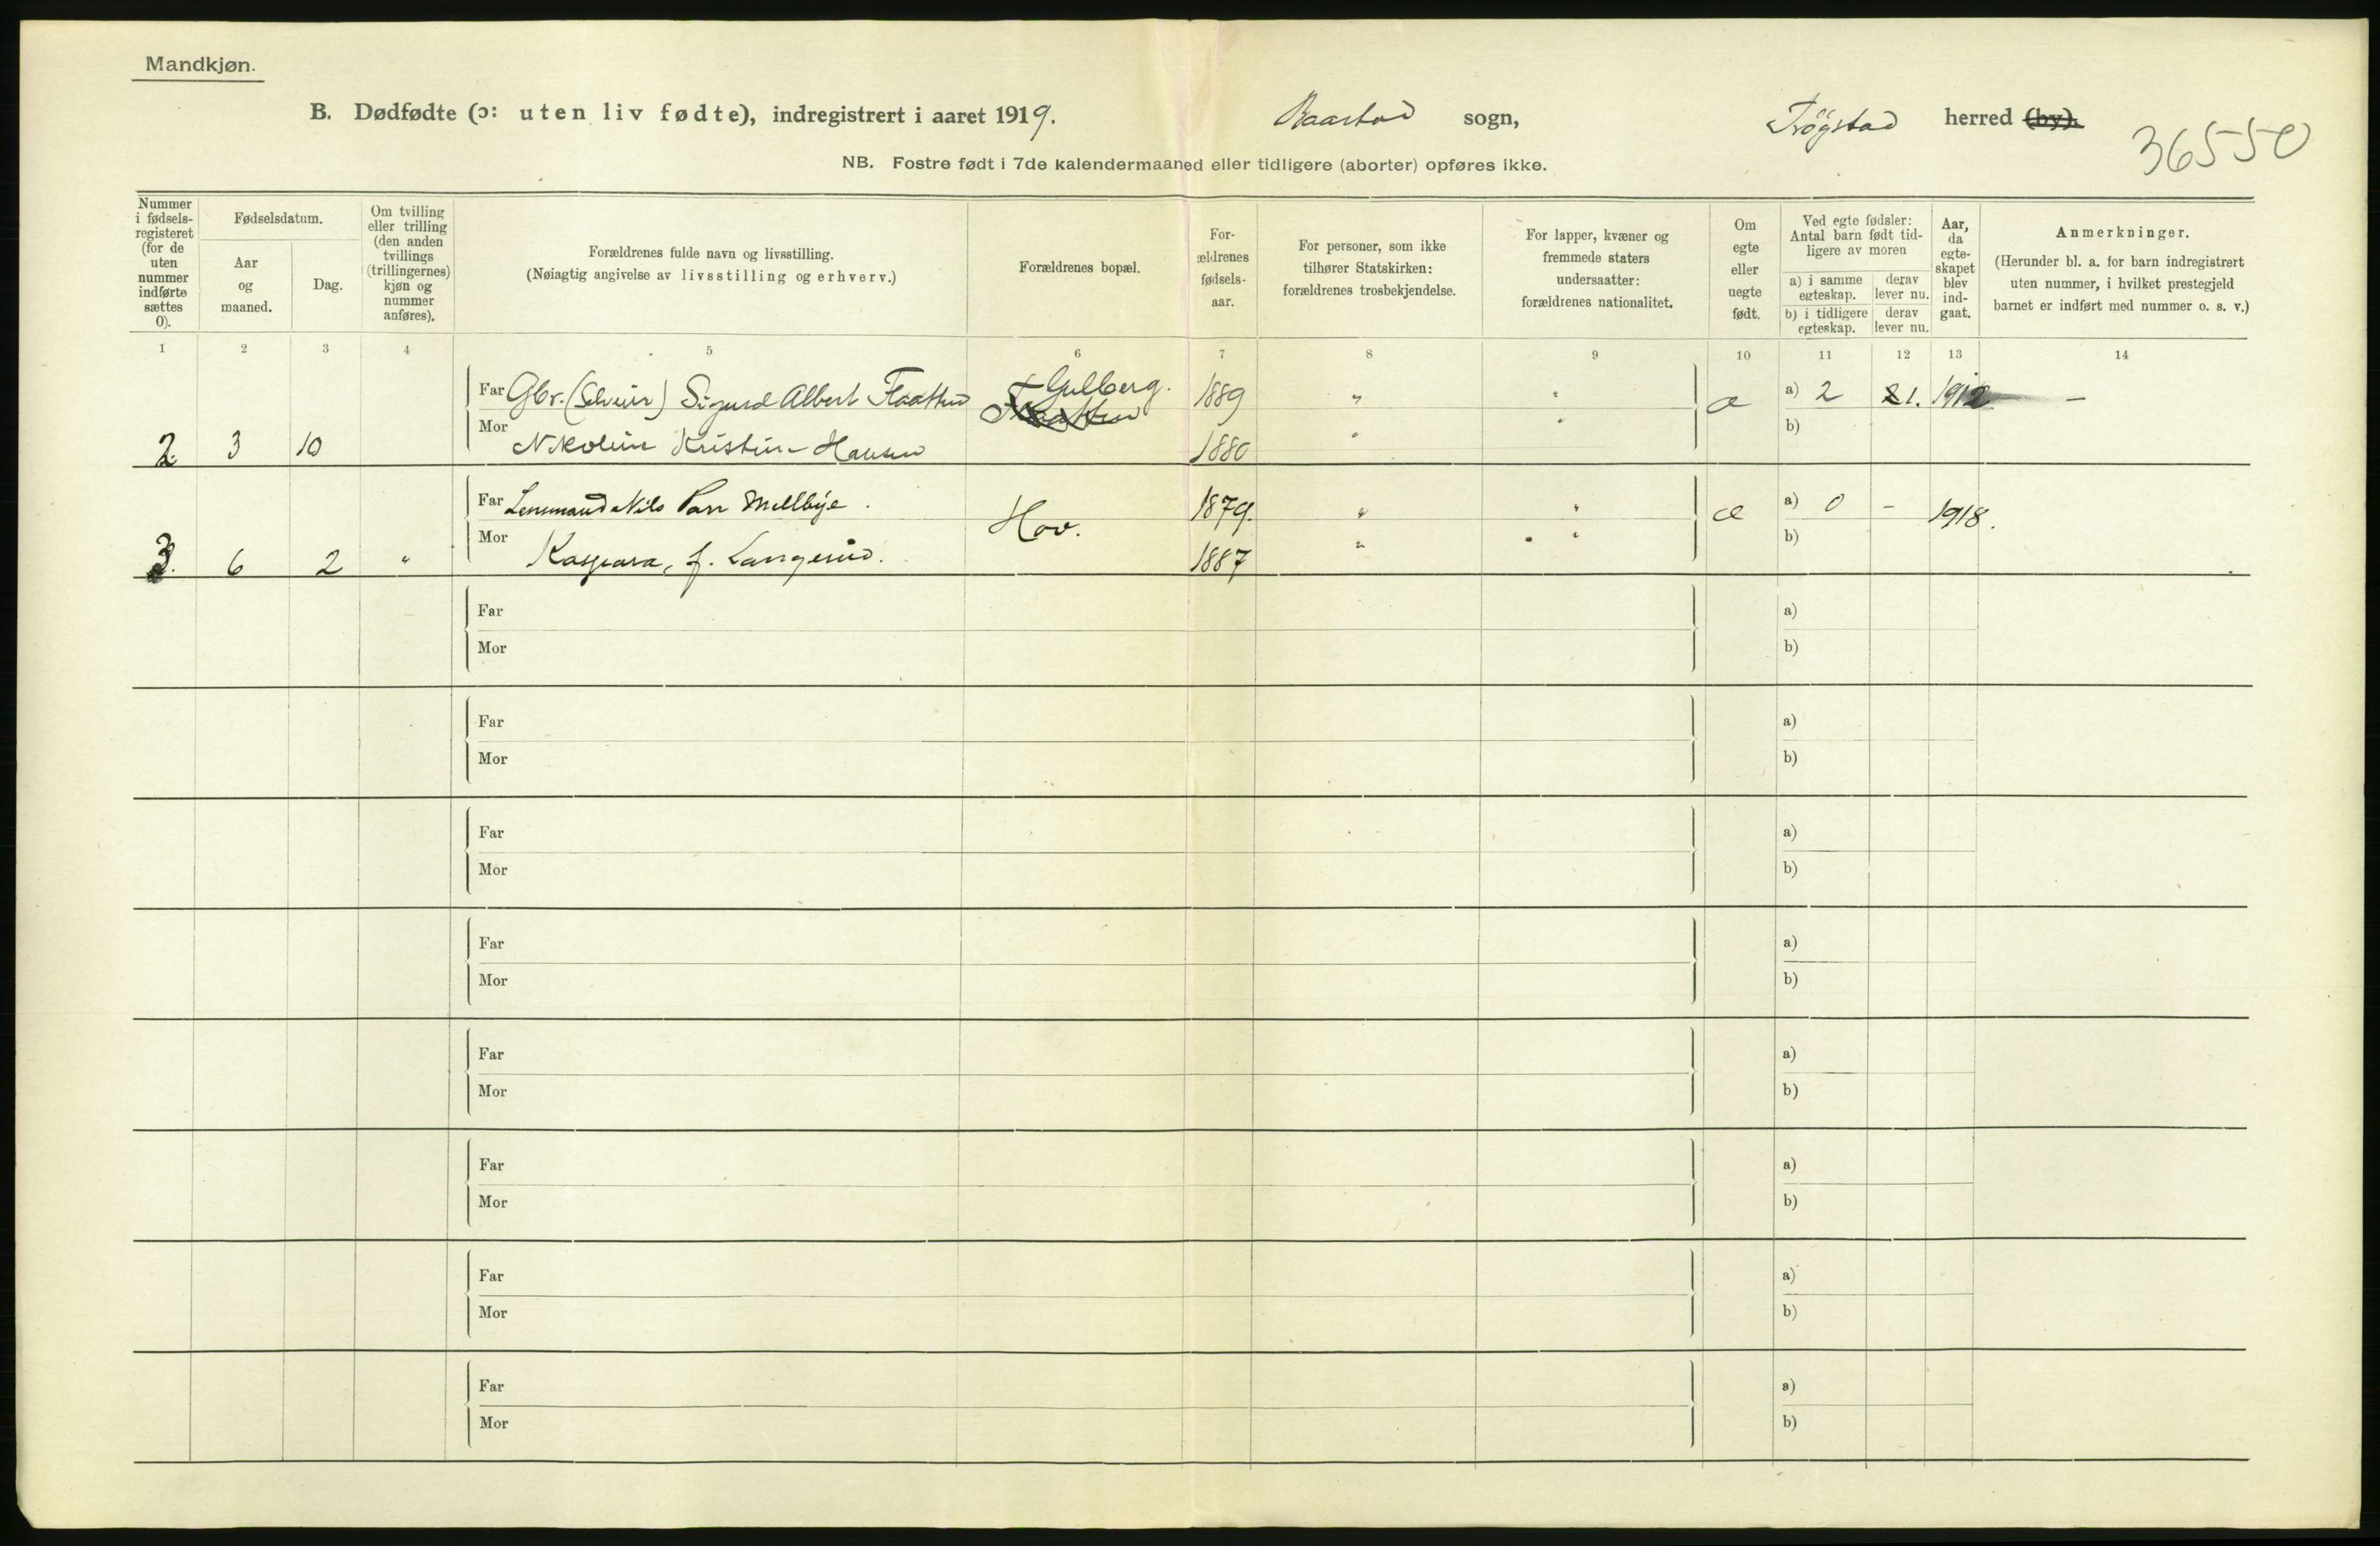 Mandkjøn.
B. Dødfødte (ɔ: uten liv fødte), indregistrert i aaret 1919. Baastad sogn, Trøgstad herred (by).
36550
NB. Fostre født i 7de kalendermaaned eller tidligere (aborter) opføres ikke.
Nummer i fødsels-registeret (for de uten nummer indførte sættes 0).
Fødselsdatum.
Aar og maaned.
Dag.
Om tvilling eller trilling (den anden tvillings (trillingernes) kjøn og nummer anføres).
Forældrenes fulde navn og livsstilling.
(Nøiagtig angivelse av livsstilling og erhverv.)
Forældrenes bopæl.
For-ældrenes fødsels-aar.
For personer, som ikke tilhører Statskirken: forældrenes trosbekjendelse.
For lapper, kvæner og fremmede staters undersaatter: forældrenes nationalitet.
Om egte eller uegte født.
Ved egte fødsler: Antal barn født tid-ligere av moren
a) i samme egteskap. derav lever nu.
b) i tidligere egteskap. derav lever nu.
Aar, da egte-skapet blev ind-gaat.
Anmerkninger.
(Herunder bl. a. for barn indregistrert uten nummer, i hvilket prestegjeld barnet er indført med nummer o. s. v.)
1 2 3 4 5 6 7 8 9 10 11 12 13 14
Far Gbr. (Selveier) Sigurd Albert Flaatten Gulberg. 1889 " " æ a) 2 1. 1912 —
Flaatten
Mor Nikoline Kristine Hansen 1880 " " b)
2. 3 10
Far Lensmand Nils Parr Mellbye. Hov. 1879. " " æ a) 0 - 1918.
Mor Kaspara, f. Langerud. 1887 " " b)
3. 6 2 "
Far a)
Mor b)
Far a)
Mor b)
Far a)
Mor b)
Far a)
Mor b)
Far a)
Mor b)
Far a)
Mor b)
Far a)
Mor b)
Far a)
Mor b)